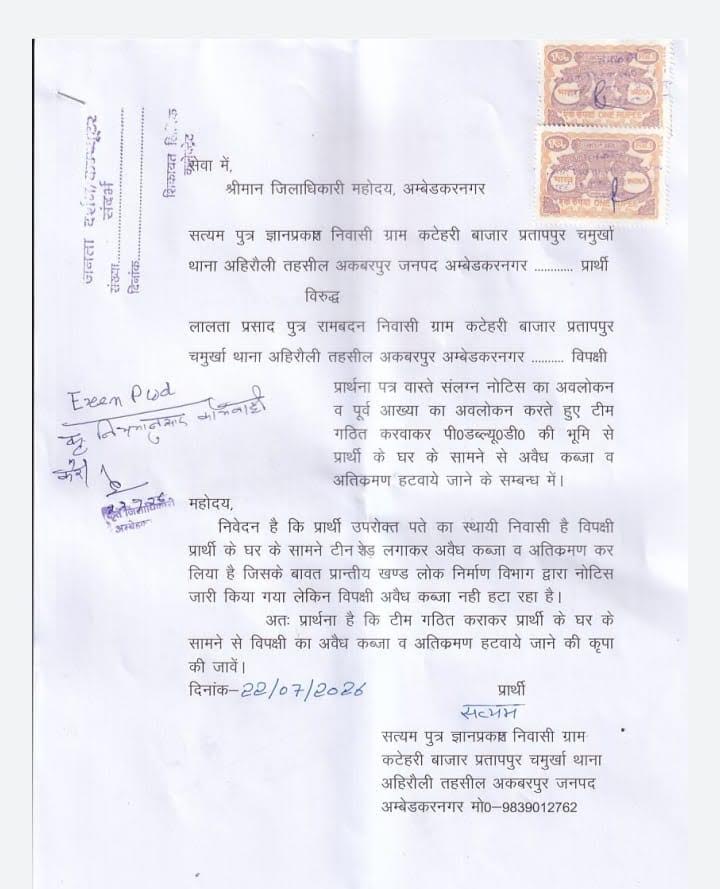 ONE RUPEE
ONE RUPEE
जनता दर्शन
संदर्भ
संख्या..............
दिनांक..............
शिकायत लिपिक
सेवा में,
श्रीमान जिलाधिकारी महोदय, अम्बेडकरनगर
सत्यम पुत्र ज्ञानप्रकाश निवासी ग्राम कटेहरी बाजार प्रतापपुर चमुर्खा
थाना अहिरौली तहसील अकबरपुर जनपद अम्बेडकरनगर ............ प्रार्थी
विरुद्ध
लालता प्रसाद पुत्र रामबदन निवासी ग्राम कटेहरी बाजार प्रतापपुर
चमुर्खा थाना अहिरौली तहसील अकबरपुर अम्बेडकरनगर .......... विपक्षी
प्रार्थना पत्र वास्ते संलग्न नोटिस का अवलोकन
व पूर्व आख्या का अवलोकन करते हुए टीम
गठित करवाकर पी0डब्ल्यू0डी0 की भूमि से
प्रार्थी के घर के सामने से अवैध कब्जा व
अतिक्रमण हटवाये जाने के सम्बन्ध में।
Exen Pwd
कृ नियमानुसार कार्यवाही
करें
महोदय,
निवेदन है कि प्रार्थी उपरोक्त पते का स्थायी निवासी है विपक्षी
प्रार्थी के घर के सामने टीन शेड़ लगाकर अवैध कब्जा व अतिक्रमण कर
लिया है जिसके बावत प्रान्तीय खण्ड लोक निर्माण विभाग द्वारा नोटिस
जारी किया गया लेकिन विपक्षी अवैध कब्जा नही हटा रहा है।
अतः प्रार्थना है कि टीम गठित कराकर प्रार्थी के घर के
सामने से विपक्षी का अवैध कब्जा व अतिक्रमण हटवाये जाने की कृपा
की जावें।
दिनांक–22/07/2026
प्रार्थी
सत्यम
सत्यम पुत्र ज्ञानप्रकाश निवासी ग्राम
कटेहरी बाजार प्रतापपुर चमुर्खा थाना
अहिरौली तहसील अकबरपुर जनपद
अम्बेडकरनगर मो0–9839012762